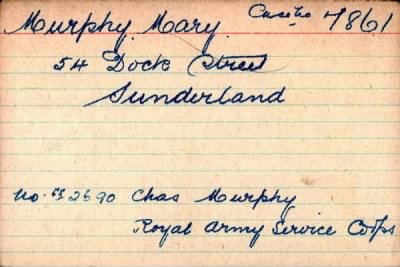 Murphy Mary. Case No 7861
54 Dock Street
Sunderland
No. SS 2690 Chas Murphy
Royal Army Service Corps